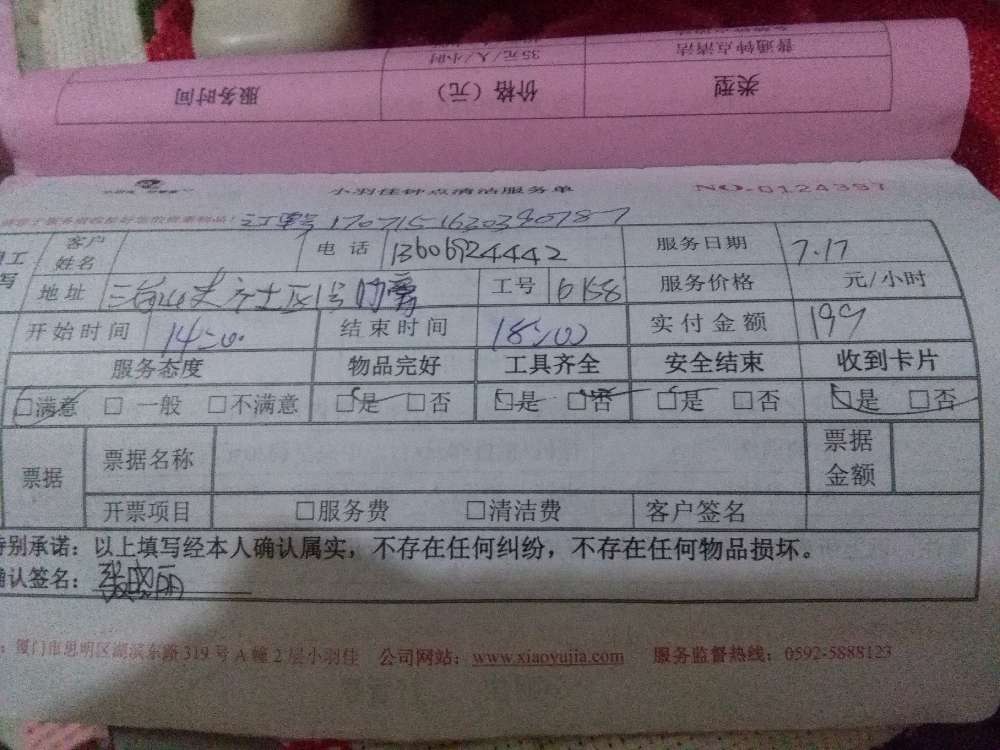 普通钟点清洁 35元/人/小时
类型 价格（元） 服务时间
小羽佳钟点清洁服务单 NO-0124357
订单号 170715163034078 7
客户姓名 电话 13606924442 服务日期 7.17
地址 工号 6158 服务价格 元/小时
开始时间 14:00 结束时间 18:00 实付金额 199
服务态度 物品完好 工具齐全 安全结束 收到卡片
□满意 □一般 □不满意 □是 □否 □是 □否 □是 □否 □是 □否
票据 票据名称 票据金额
开票项目 □服务费 □清洁费 客户签名
特别承诺：以上填写经本人确认属实，不存在任何纠纷，不存在任何物品损坏。
确认签名：
厦门市思明区湖滨东路319号A幢2层小羽佳 公司网站：www.xiaoyujia.com 服务监督热线：0592-5888123